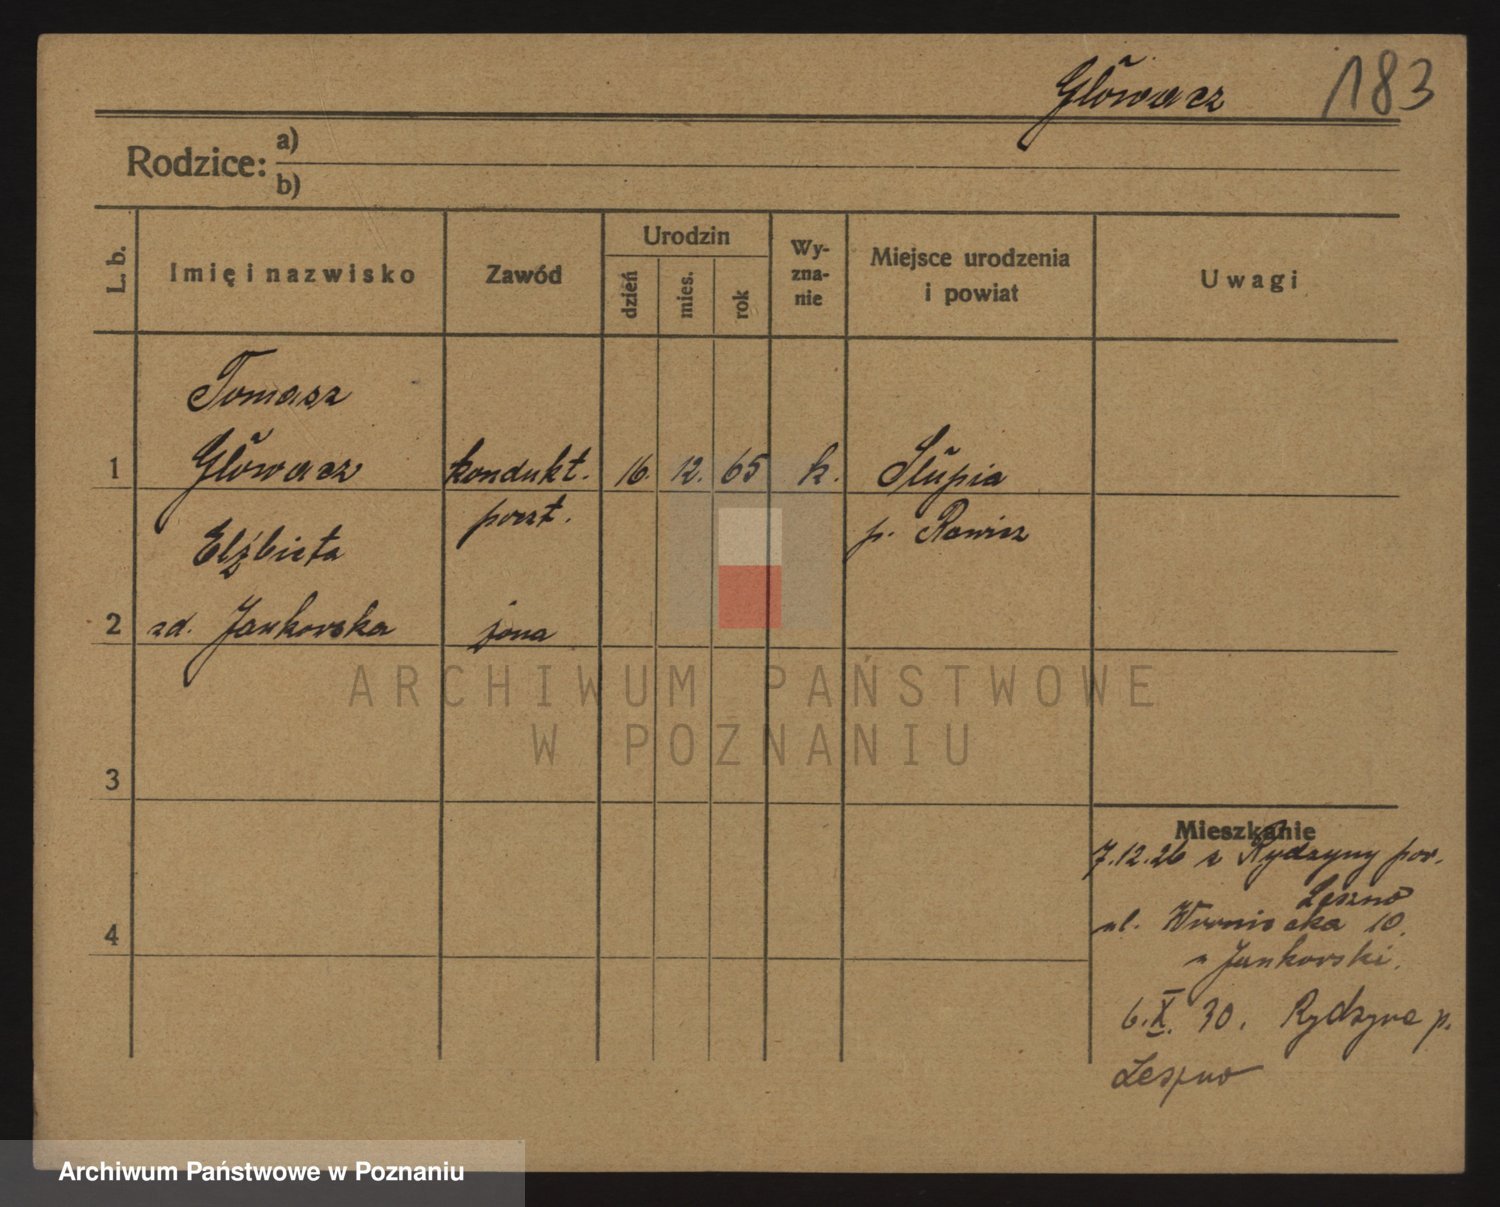 Głowacz 183
Rodzice: a)
b)
L. b. Imię i nazwisko Zawód Urodzin dzień mies. rok Wy-zna-nie Miejsce urodzenia i powiat Uwagi
Tomasz
1 Głowacz kondukt. 16. 12. 65 k. Słupia
poczt. p. Rawicz
Elżbieta
2 zd. Jankowska żona
3
Mieszkanie
7.12.26 z Rydzyny pow.
Leszno
4 ul. Wroniecka 10.
u Jankowski.
6.X. 30. Rydzyna p.
Leszno
ARCHIWUM PAŃSTWOWE
W POZNANIU
Archiwum Państwowe w Poznaniu